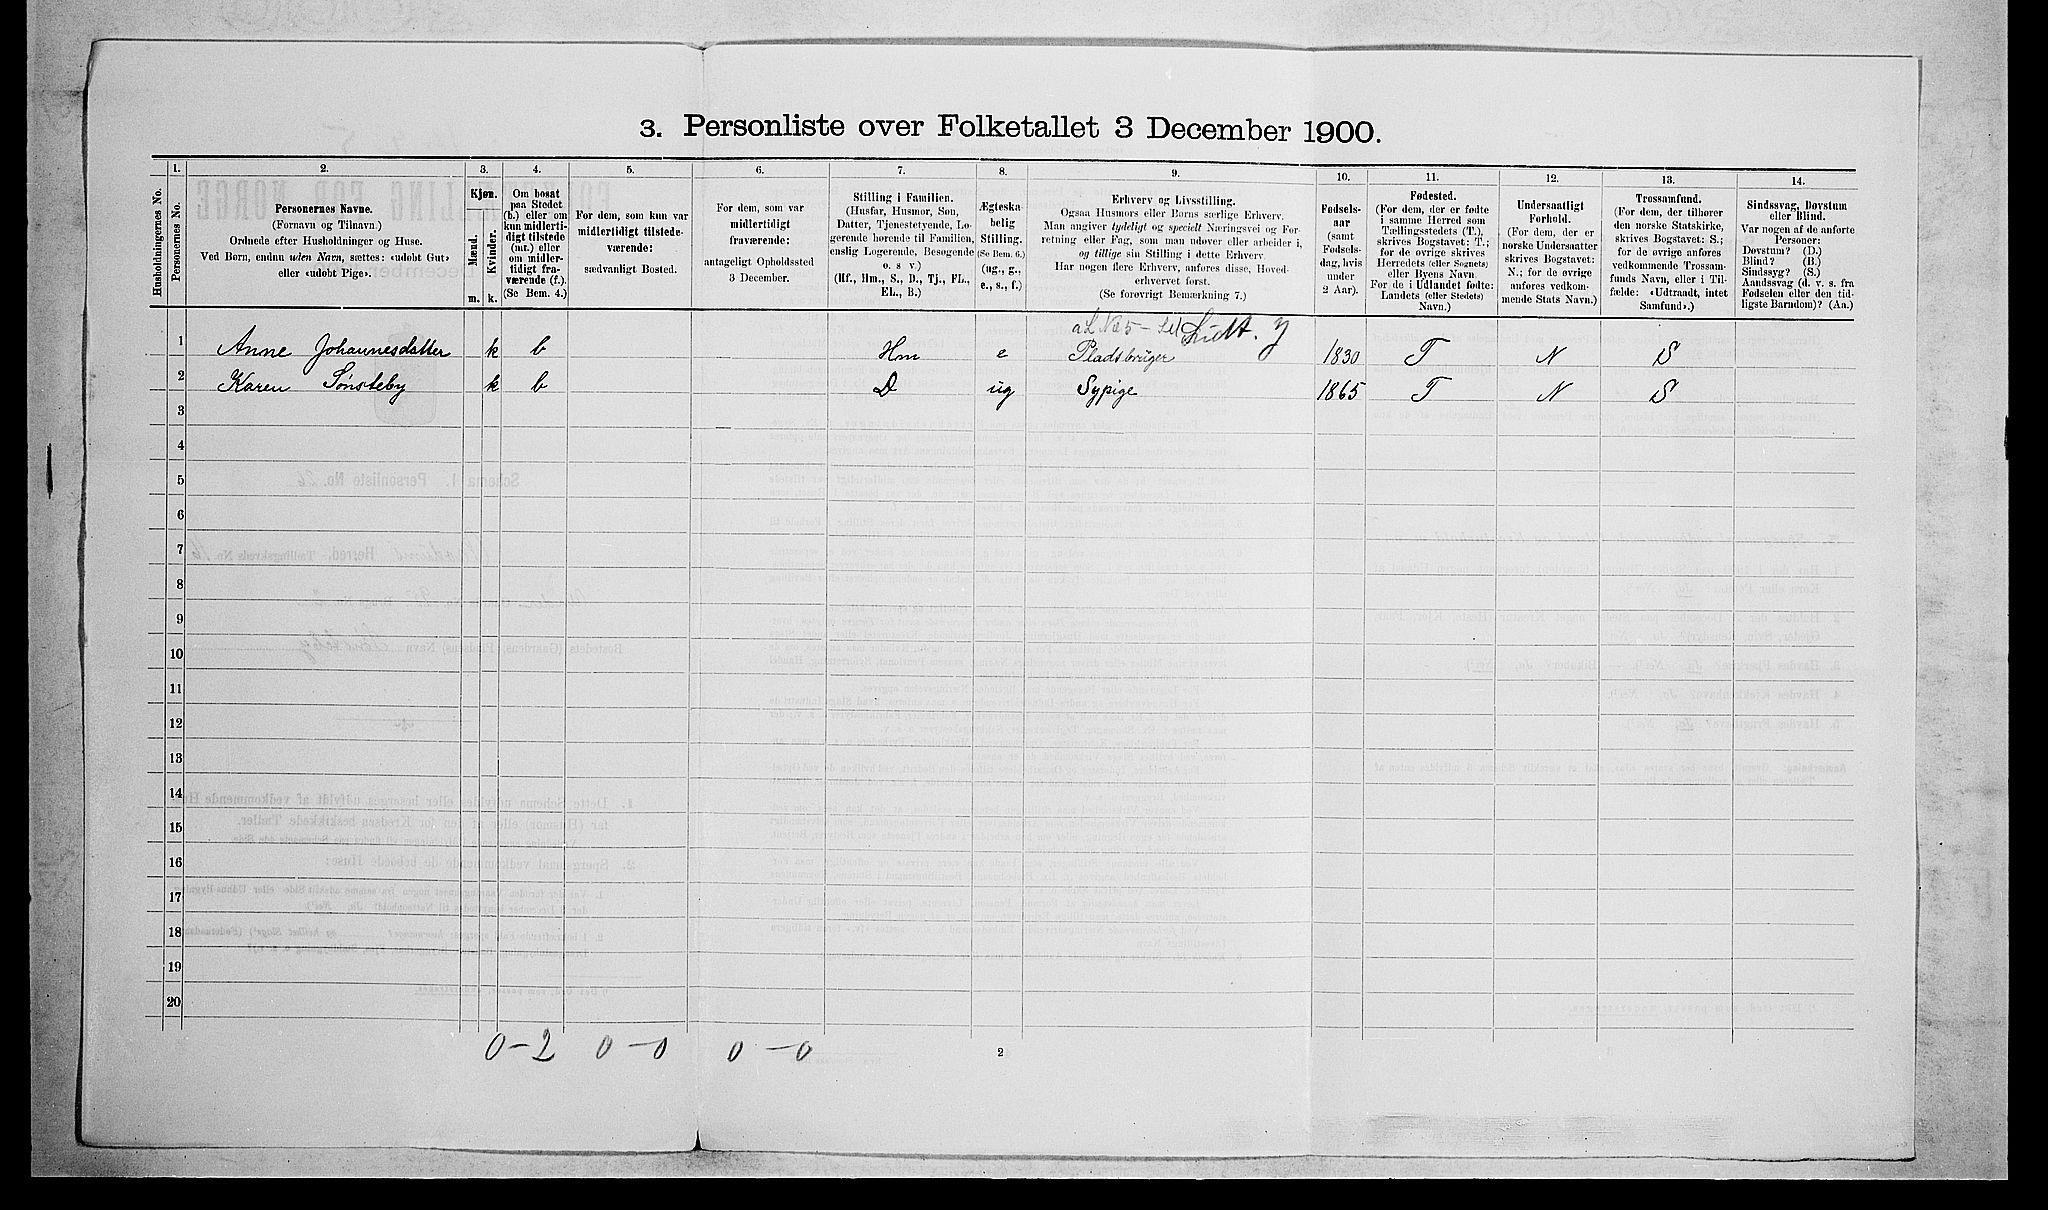 3. Personliste over Folketallet 3 December 1900.
Husholdningernes No.
1.
Personernes No.
2.
Personernes Navne.
(Fornavn og Tilnavn.)
Ordnede efter Husholdninger og Huse.
Ved Børn, endnu uden Navn, sættes: «udøbt Gut»
eller «udøbt Pige».
3.
Kjøn.
Mænd.
Kvinder.
m.
k.
4.
Om bosat
paa Stedet
(b.) eller om
kun midlerti-
digt tilstede
(mt.) eller
om midler-
tidigt fra-
værende (f.).
(Se Bem. 4.)
5.
For dem, som kun var
midlertidigt tilstede-
værende:
sædvanligt Bosted.
6.
For dem, som var
midlertidigt
fraværende:
antageligt Opholdssted
3 December.
7.
Stilling i Familien.
(Husfar, Husmor, Søn,
Datter, Tjenestetyende, Lo-
gerende hørende til Familien,
enslig Logerende, Besøgende
o. s. v.)
(Hf., Hm., S., D., Tj., FL.,
EL., B.)
8.
Ægteska-
belig
Stilling.
(Se Bem. 6.)
(ug., g.,
e., s., f.)
9.
Erhverv og Livsstilling.
Ogsaa Husmors eller Børns særlige Erhverv.
Man angiver tydeligt og specielt Næringsvei og For-
retning eller Fag, som man udøver eller arbeider i,
og tillige sin Stilling i dette Erhverv.
Har nogen flere Erhverv, anføres disse, Hoved-
erhvervet først.
(Se forøvrigt Bemærkning 7.)
10.
Fødsels-
aar
(samt
Fødsels-
dag, hvis
under
2 Aar).
11.
Fødested.
(For dem, der er fødte
i samme Herred som
Tællingsstedets (T.),
skrives Bogstavet: T.;
for de øvrige skrives
Herredets (eller Sognets)
eller Byens Navn.
For de i Udlandet fødte:
Landets (eller Stedets)
Navn.)
12.
Undersaatligt
Forhold.
(For dem, der er
norske Undersaatter
skrives Bogstavet:
N.; for de øvrige
anføres vedkom-
mende Stats Navn.)
13.
Trossamfund.
(For dem, der tilhører
den norske Statskirke,
skrives Bogstavet: S.;
for de øvrige anføres
vedkommende Trossam-
funds Navn, eller i Til-
fælde: «Udtraadt, intet
Samfund».)
14.
Sindssvag, Døvstum
eller Blind.
Var nogen af de anførte
Personer:
Døvstum? (D.)
Blind? (B.)
Sindssyg? (S.)
Aandssvag (d. v. s. fra
Fødselen eller den tid-
ligste Barndom)? (Aa.)
1 Anne Johannesdatter k b Hm e Pladsbruger 1830 T N S
2 Karen Sønsteby k b D ug Sypige 1865 T N S
3
4
5
6
7
8
9
10
11
12
13
14
15
16
17
18
19
20
0-2 0-0 0-0
2